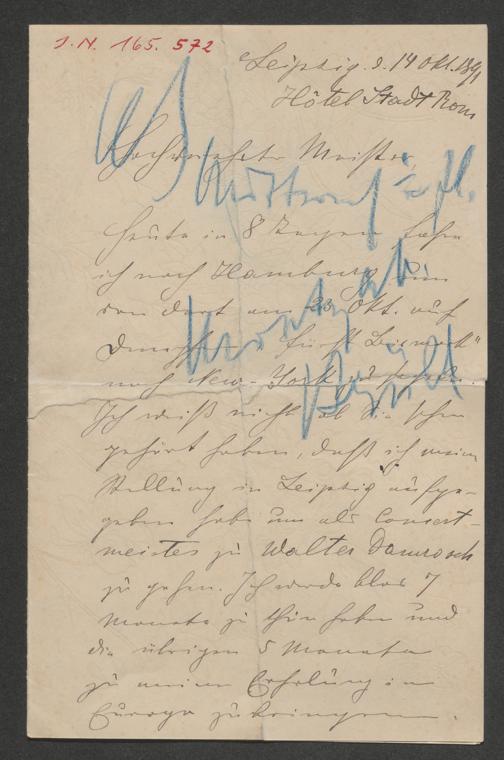 J. N. 165. 572
Leipzig d. 14 Okt. 1891
Hôtel Stadt Rom
Hochverehrter Meister,
Heute in 8 Tagen fahre
ich nach Hamburg um
von dort am 23 Okt. auf
Dampfer „Fürst Bismark"
nach New-York
Ich weiß nicht ob Sie schon
gehört haben, daß ich meine
Stellung in Leipzig aufge-
geben habe um als Concert-
meister zu Walter Damrosch
zu gehen. Ich werde blos 7
Monate zu thun haben und
die übrigen 5 Monate
zu meiner Erholung in
Europa zubringen.